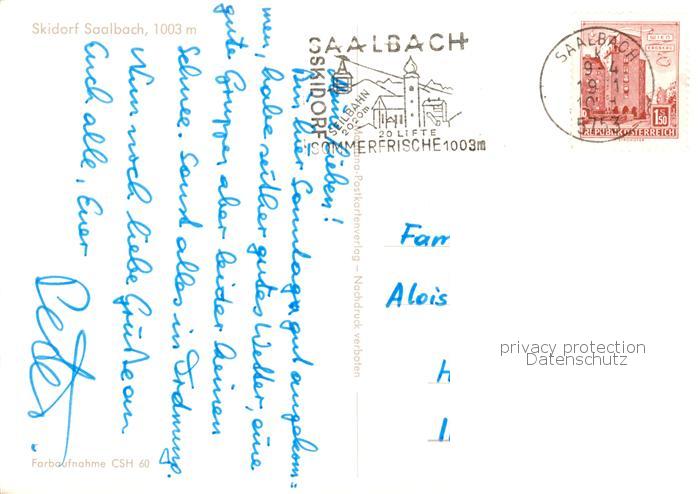 Skidorf Saalbach, 1003 m
SAALBACH
SKIDORF
SEILBAHN
2020m
20 LIFTE
SOMMERFRISCHE 1003m
SAALBACH
5753
WIEN
ERDBERG
1.50
REPUBLIK ÖSTERREICH
Meine Lieben!
Bin hier Sonntags gut angekom=
men, habe seither gutes Wetter, eine
gute Gruppe, aber leider keinen
Schnee. Sonst alles in Ordnung.
Nun noch liebe Grüße an
Euch alle, Euer
Peter.
-Postkartenverlag – Nachdruck verboten
Fam
Alois
privacy protection
Datenschutz
Farbaufnahme CSH 60